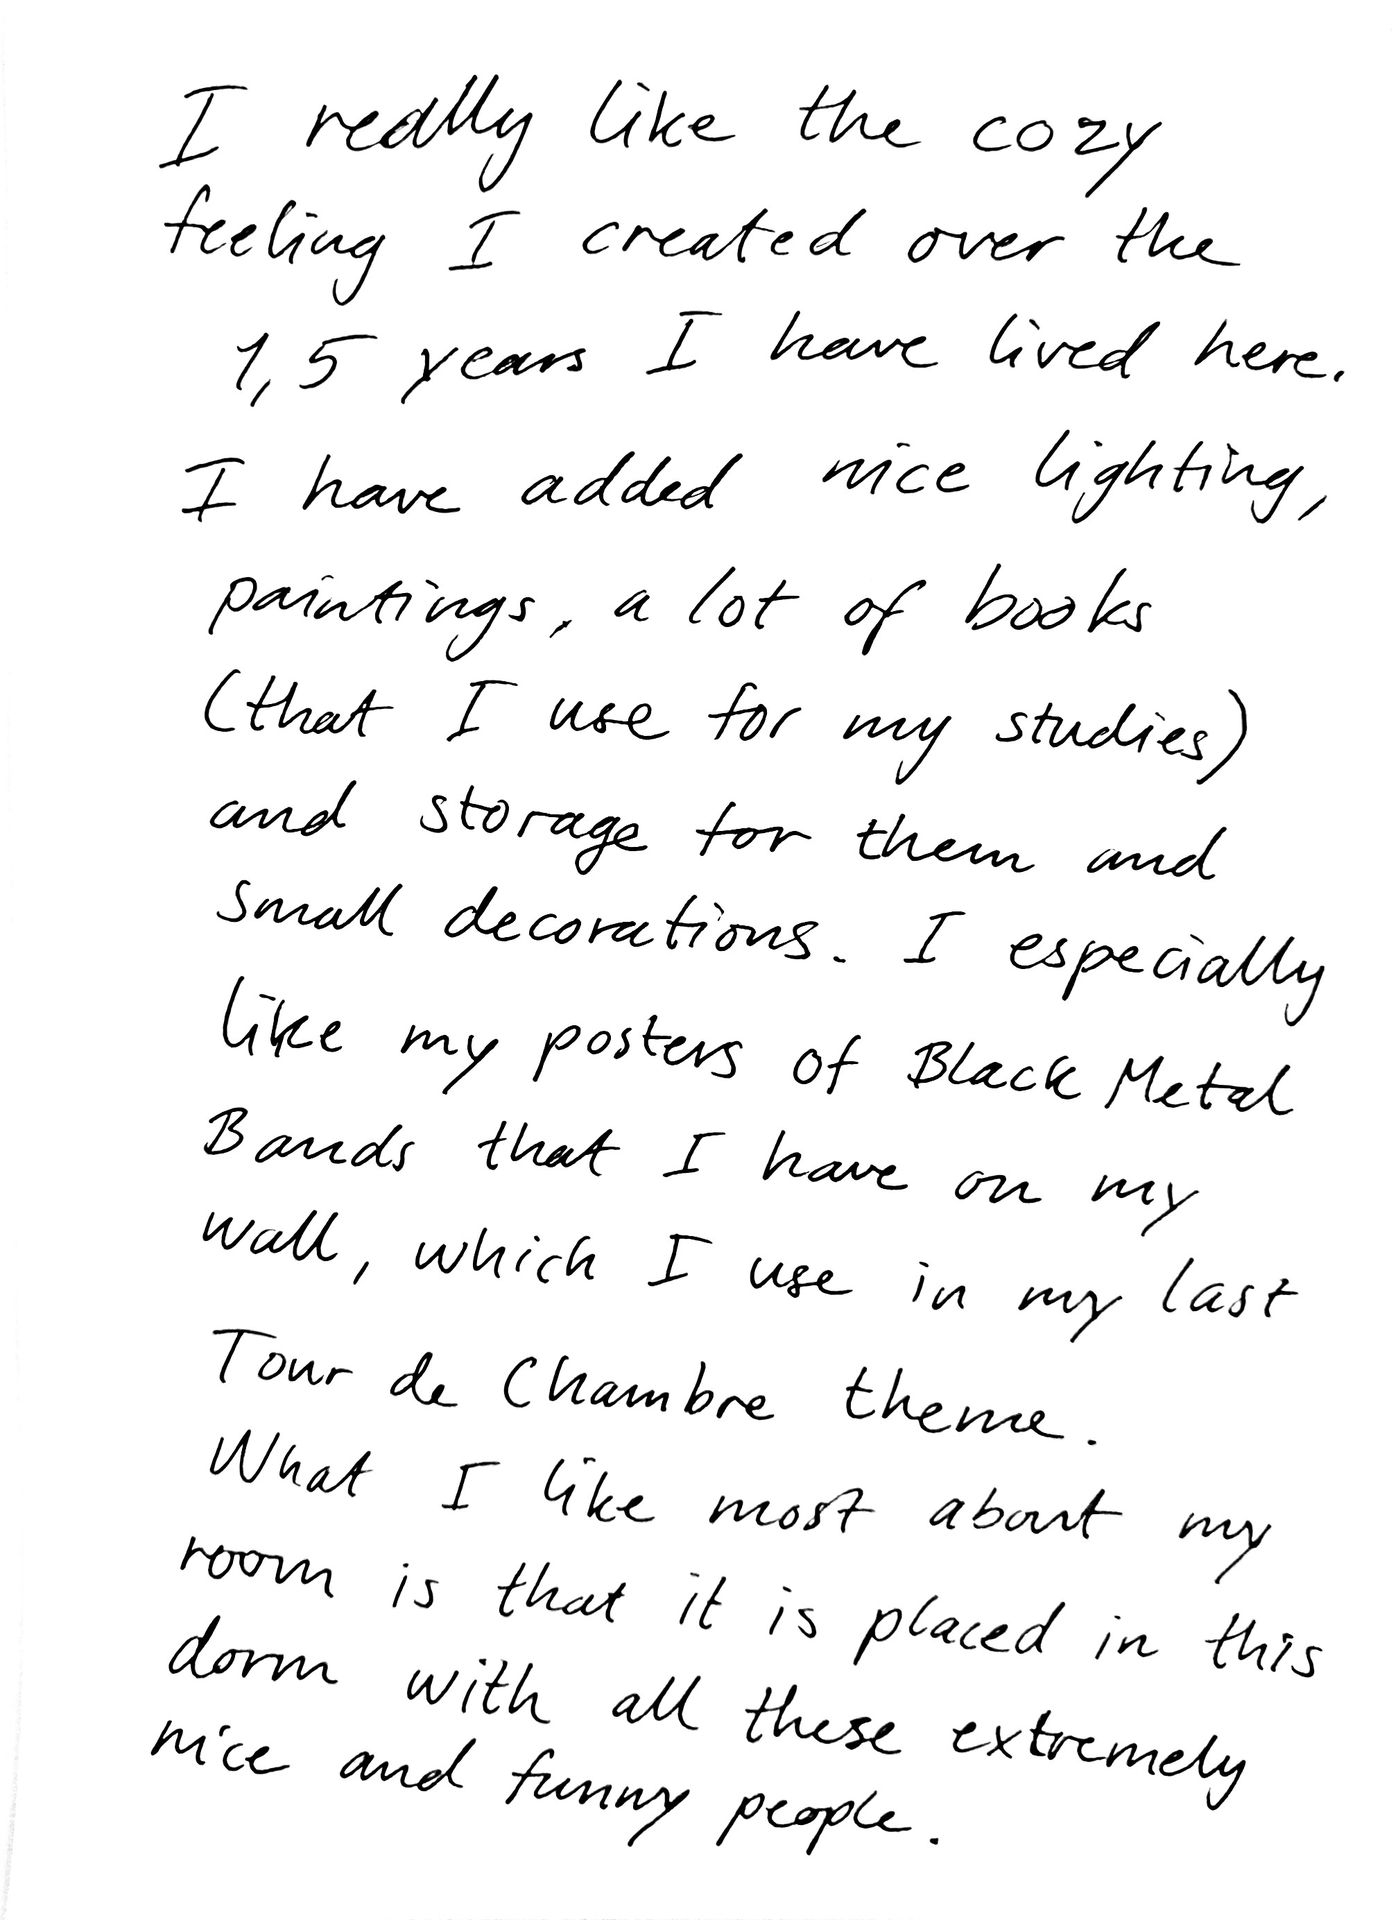 I really like the cozy
feeling I created over the
1,5 years I have lived here.
I have added nice lighting,
paintings, a lot of books
(that I use for my studies)
and storage for them and
small decorations. I especially
like my posters of Black Metal
Bands that I have on my
wall, which I use in my last
Tour de Chambre theme.
What I like most about my
room is that it is placed in this
dorm with all these extremely
nice and funny people.